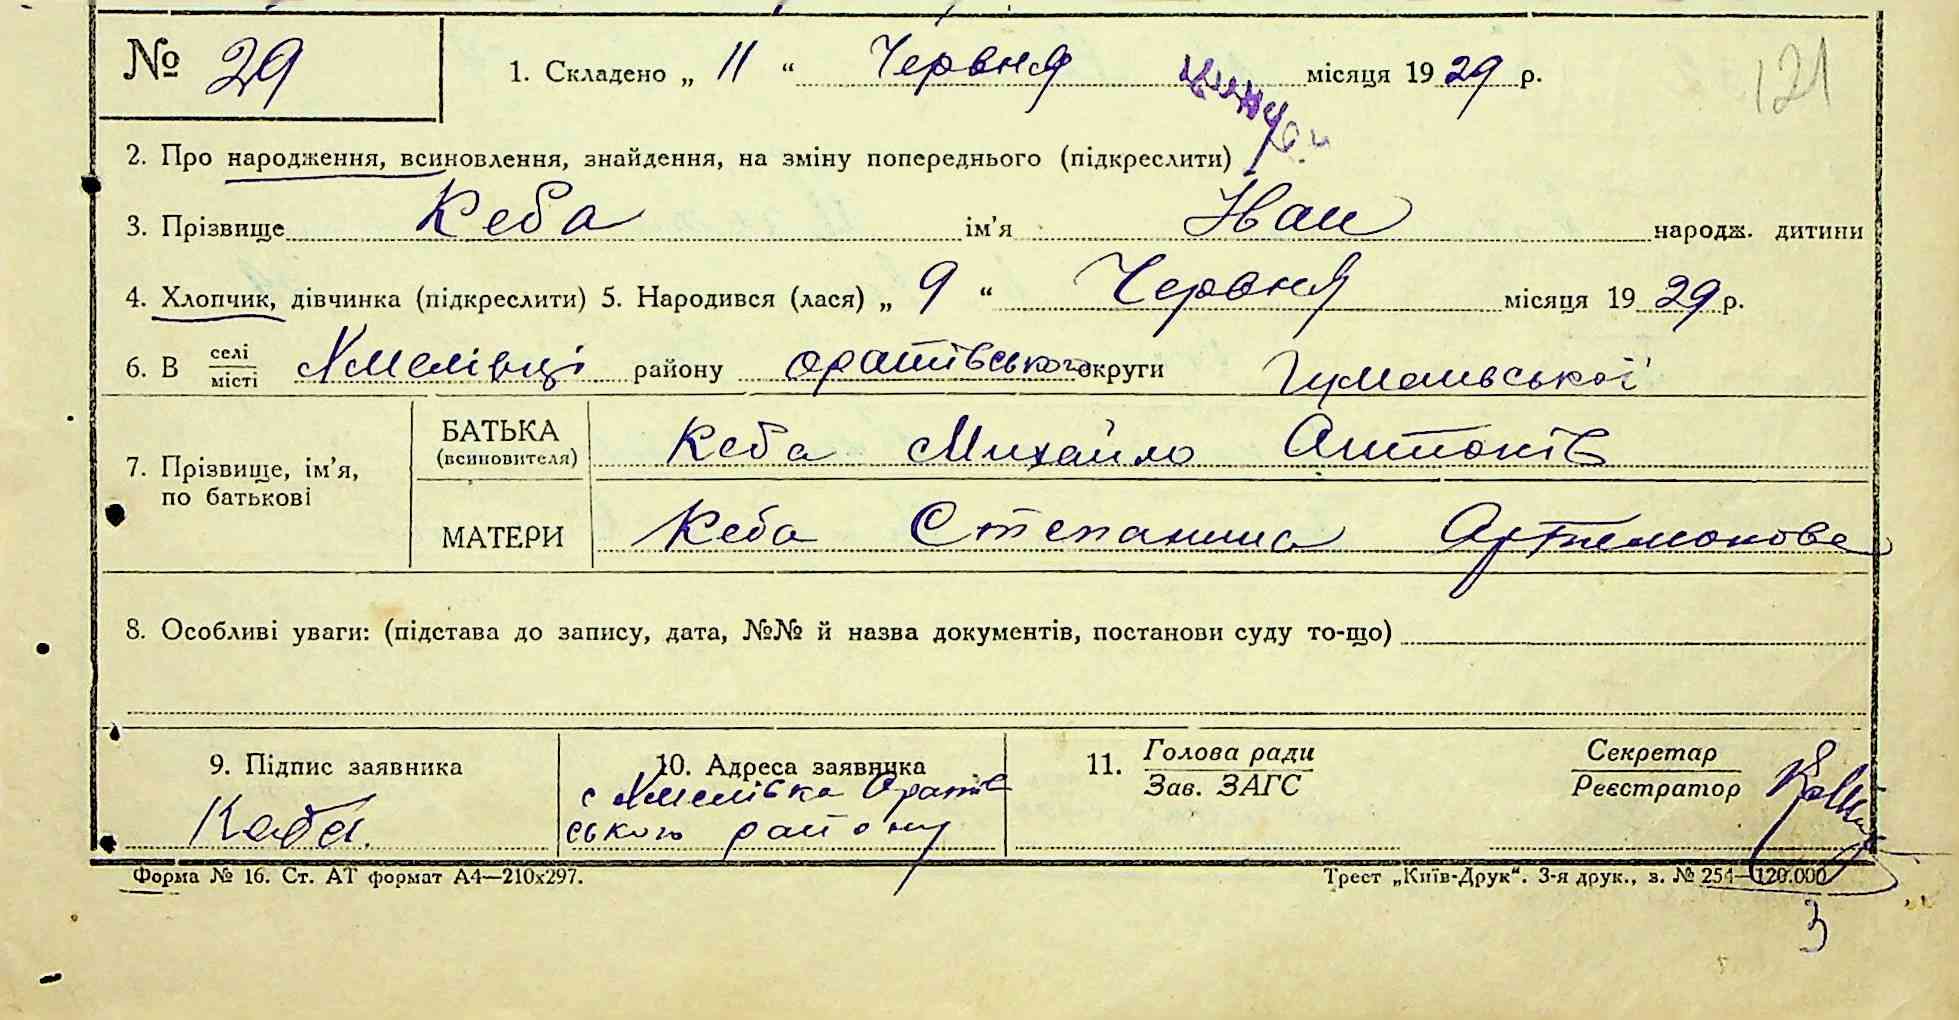 № 29
1. Складено „ 11 “ Червня місяця 1929 р.
121
2. Про народження, всиновлення, знайдення, на зміну попереднього (підкреслити)
3. Прізвище Кеба ім’я Іван народж. дитини
4. Хлопчик, дівчинка (підкреслити) 5. Народився (лася) „ 9 “ Червня місяця 1929 р.
6. В селі місті Хмелівці району Оратівського округи Гуманьської
7. Прізвище, ім’я, по батькові
БАТЬКА (всиновителя) Кеба Михайло Антонів
МАТЕРИ Кеба Степанина Артемонова
8. Особливі уваги: (підстава до запису, дата, №№ й назва документів, постанови суду то-що)
9. Підпис заявника
Кеба
10. Адреса заявника
с Хмелівка Оратів
ського району
11. Голова ради
Зав. ЗАГС
Секретар
Реєстратор
Форма № 16. Ст. АТ формат А4—210х297.
Трест „Київ-Друк“. 3-я друк., з. № 254—120.000
3